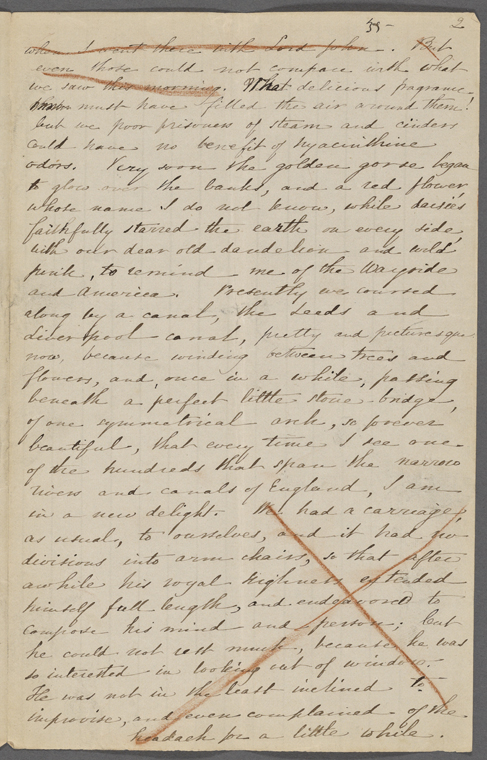 55- 2
when I went there with Lord John. But
even those could not compare with what
we saw this morning. What delicious fragrance
must have filled the air around them!
but we poor prisoners of steam and cinders
could have no benefit of hyacinthine
odors. Very soon the golden gorse began
to glow over the banks, and a red flower
whose name I do not know, while daisies
faithfully starred the earth on every side
with our dear old dandelion and wild
pink, to remind me of the Wayside
and America. Presently we coursed
along by a canal, the Leeds and
Liverpool canal, pretty and picturesque
now, because winding between trees and
flowers, and, once in a while, passing
beneath a perfect little stone bridge,
of one symmetrical arch, so forever
beautiful, that every time I see one
of the hundreds that span the narrow
rivers and canals of England, I am
in a new delight. We had a carriage,
as usual, to ourselves, and it had no
divisions into arm chairs, so that after
awhile his royal highness extended
himself full length, and endeavored to
compose his mind and person; but
he could not rest much, because he was
so interested in looking out of window.—
He was not in the least inclined to
improvise, and even complained of the
headach for a little while.